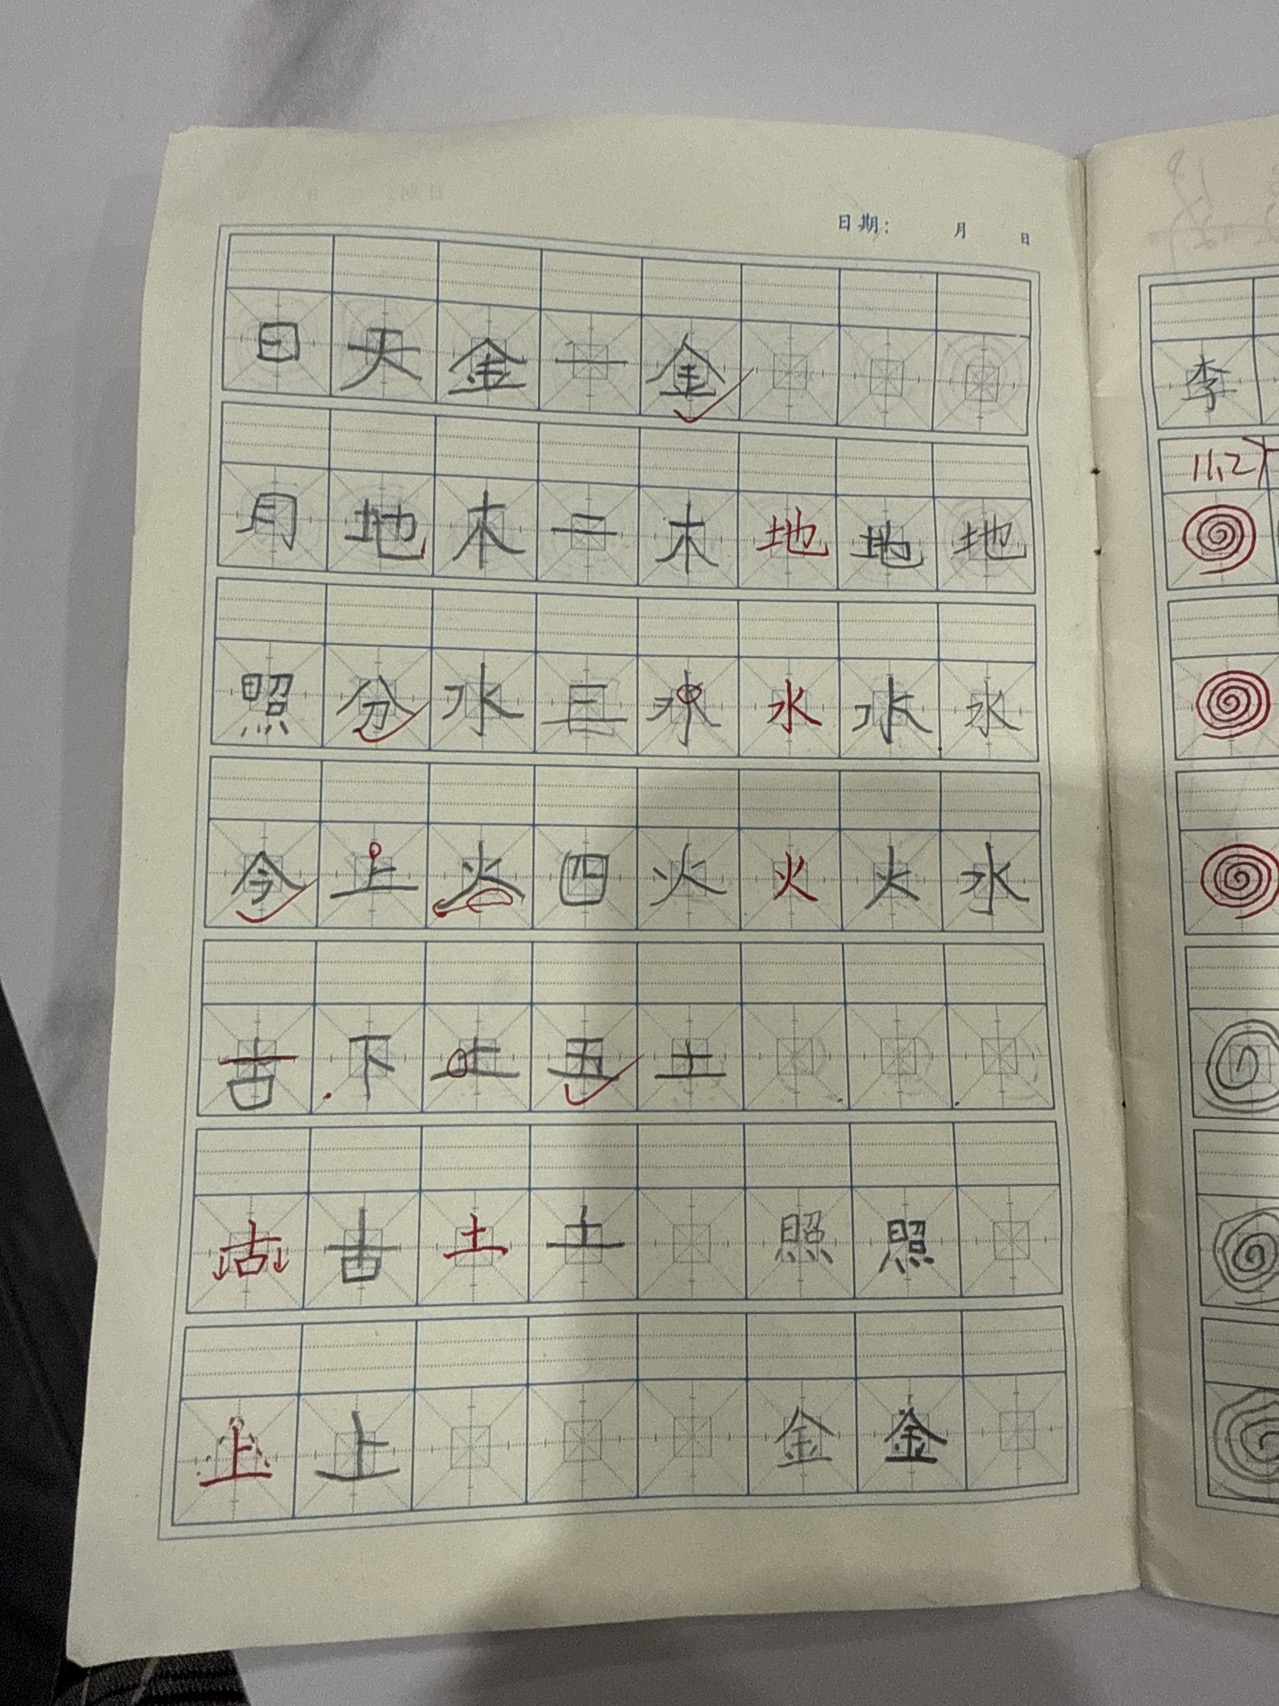 日期： 月 日
日 天 金 一 金
月 地 木 二 木 地 地 地
照 分 水 三 水 水 水 水
今 上 火 四 火 火 火 水
古 下 土 五 土
古 古 土 土 照 照
上 上 金 金
李
11.2